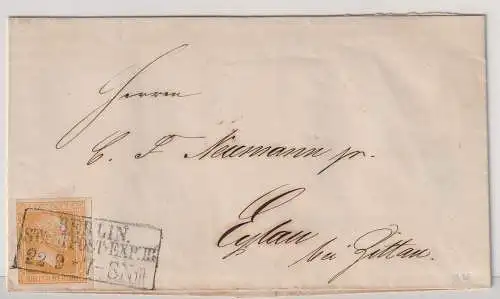 Herrn
C. F. Neumann jr.
Eylau
bei Zittau.
BERLIN
POST-EXP. III
22 9